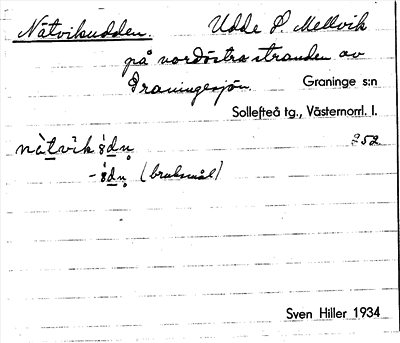 Nätvikudden. Udde S. Mellvik
på nordöstra stranden av
Graningesjön. Graninge s:n
Sollefteå tg., Västernorrl. l.
252
(bruksmål)
Sven Hiller 1934